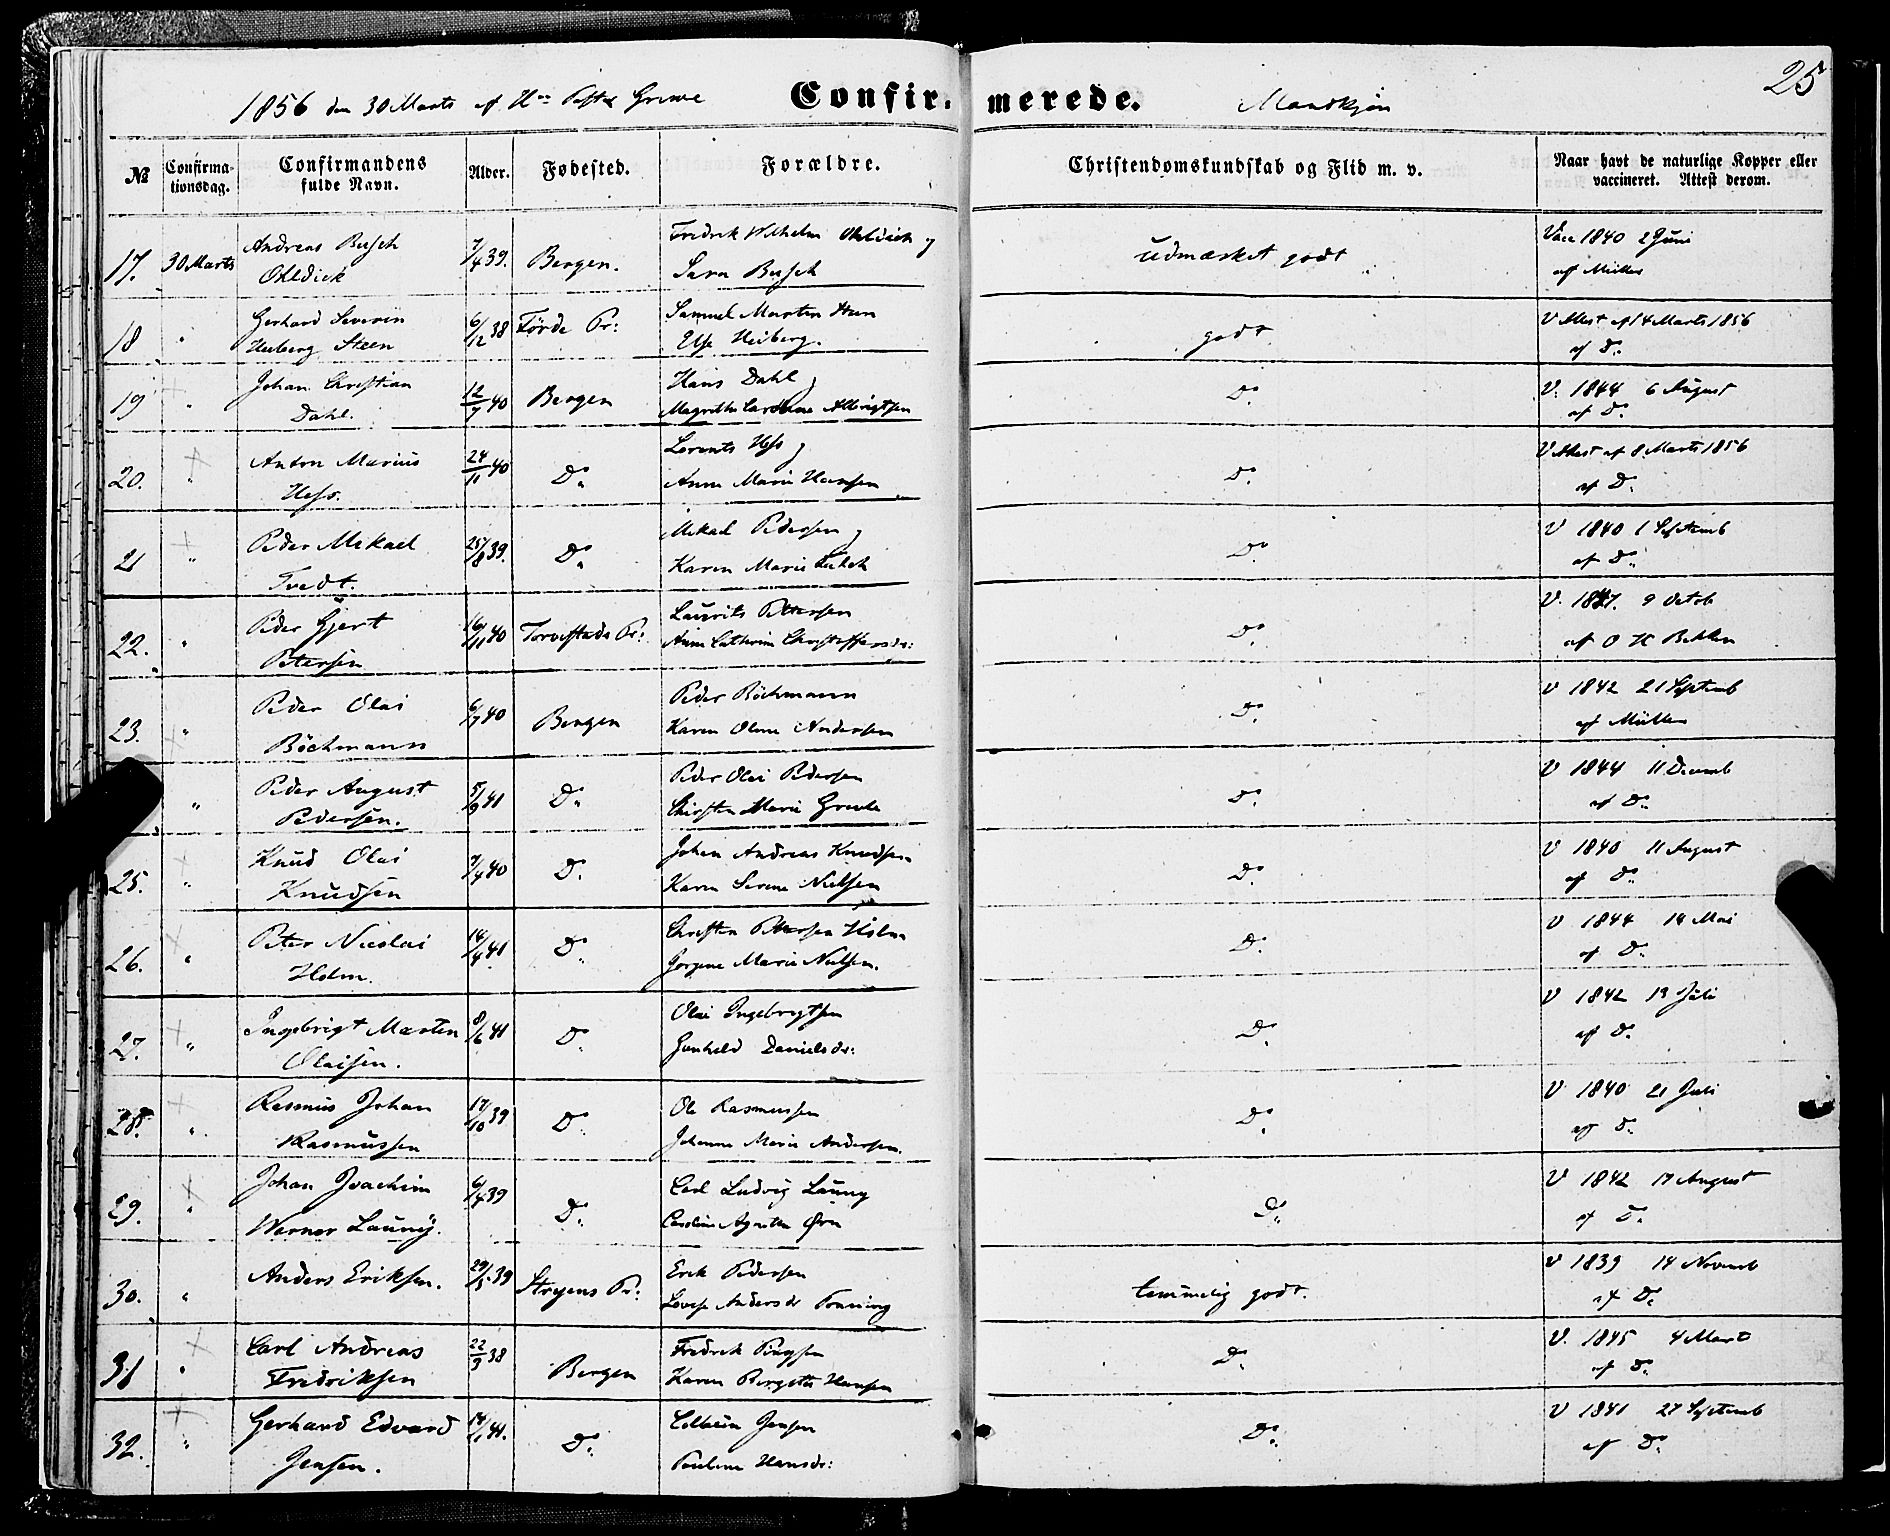 25
1856 den 30 Marts af Hr Pastor Greve Confir- merede. Mandkjøn
№ Confirma- Confirmandens Alder. Fødested. Forældre. Christendomskundskab og Flid m. v. Naar havt de naturlige Kopper eller
tionsdag. fulde Navn. vaccineret. Attest derom.
17. 30 Marts Andreas Busch 7/4 39. Bergen. Fredrik Wilhelm Ohldieck og udmærket godt Vacc 1840 2 Juni
Ohldieck Sara Busch af Müller
18 " Gerhard Severin 6/12 38 Förde Pr: Samuel Marten Steen godt V Attest af 14 Marts 1856
Heiberg Steen Else Heiberg. af Do
19 " Johan Christian 12/7 40 Bergen Hans Dahl Do V. 1844 6 August
Dahl. Magrethe Albrigtsen af Do
20. " Anton Marius 24/11 40 Do Lorents Hess Do V Attest af 8 Marts 1856
Hess. Anne Marie Hansen af Do
21 " Peder Mikael 25/8 39. Do Mikael Pedersen Do V 1840 1 Septemb
Tvedt. Karen Marie af Do
22. " Peder Gjert 16/11 40 Torvestads Pr: Laurits Petersen Do V. 1847. 9 Octob
Petersen Anne Cathrine Christoffersdr: af O H Bekken
23. " Peder Olai 6/7 40 Bergen Peder Böchmann Do V 1842 21 Septemb
Böchmann Karen Oline Andersen af Müller
" Peder August 5/9 41 Do Peder Olai Pedersen Do V 1844 11 Decemb
Pedersen. Marie af Do
25. " Knud Olai 7/4 40 Do Johan Andreas Knudsen Do V 1840 11 August
Knudsen Karen Serine Nielsen af Do
26. " Peter Nicolai 14/4 41 Do Christen Pettersen Holm Do V 1844 14 Mai
Holm. Jorgine Marie Nielsen. af Do
27. " Ingebrigt Marten 8/6 41 Do Olai Ingebrigtsen Do V 1842 19 Juli
Olaisen. Gunhild Danielsdr: af Do
28. " Rasmus Johan 17/10 39 Do Ole Rasmussen Do V 1840 21 Juli
Rasmussen Johanne Marie Andersen. af Do
29. " Johan Joachim 6/4 39 Do Carl Ludvig Launy Do V 1842 17 August
Werner Launÿ. Caroline Agnethe Ørn af Do
30. " Anders Eriksen. 29/5 39 Stryens Pr: Erik Pedersen temmelig godt. V 1839 14 Novemb
Andersdr af Do
31 " Carl Andreas 22/3 38 Bergen Fredrik Do V. 1845 4 Mart
Fredriksen Karen Bergitte Hansen af Do
32. " Gerhard Edvard 14/1 41. Do Jensen Do V 1841 27 Septemb
Jensen. Pauline Hansdr: af Do